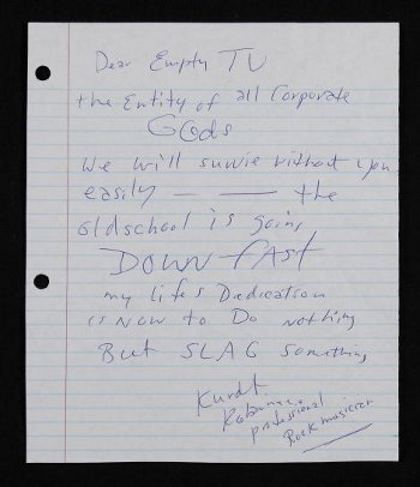 Dear Empty TV
the Entity of all Corporate
GOds
We will survive without you
easily — — the
oldschool is going
DOWN fAST
my lifes Dedication
is Now to Do nothing
But SLAG Something
Kurdt
professional
Rock musician